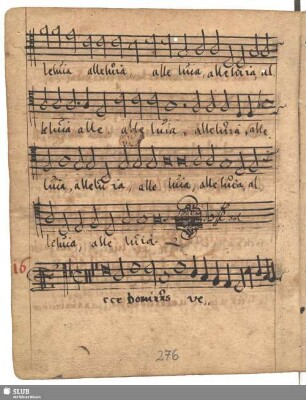 leluia alleluia alle luia, alleluia, al
leluia alle alle luia, alleluia, alle
luia, allelu ia, alle luia, alleluia, al
leluia, alle luia
16
cce Dominus ve,
276
SLUB